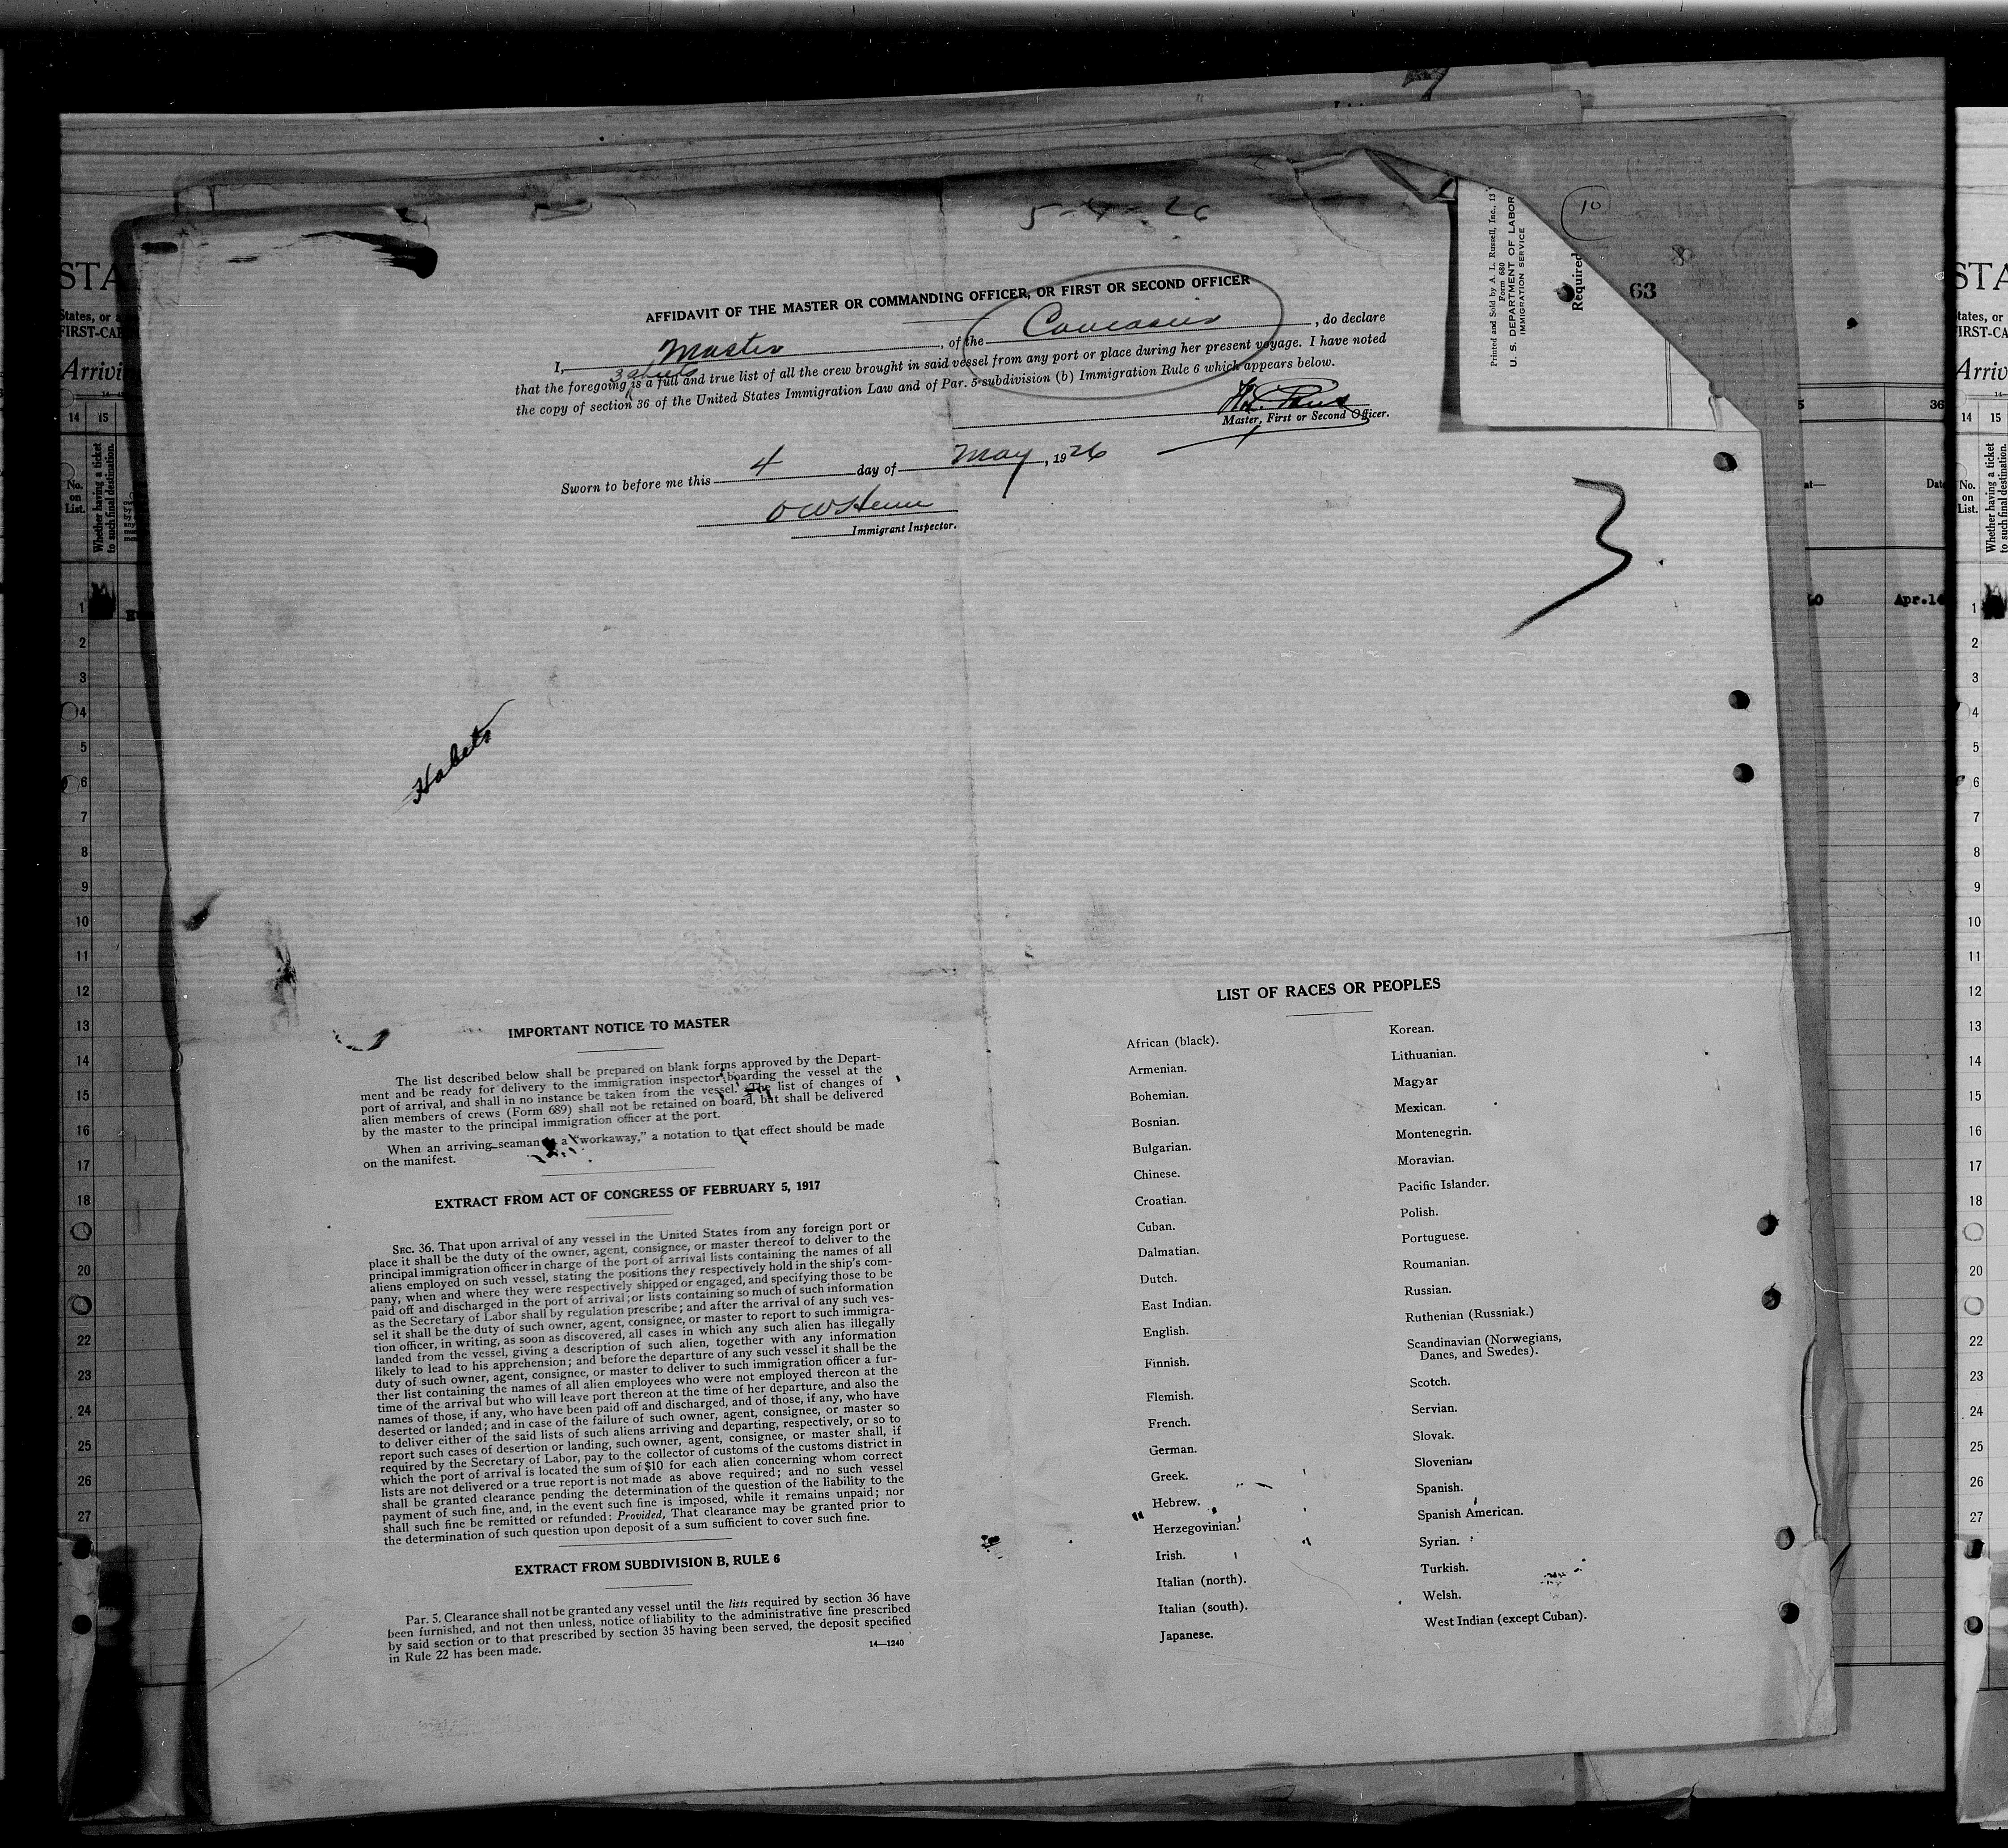 5-4-26
AFFIDAVIT OF THE MASTER OR COMMANDING OFFICER, OR FIRST OR SECOND OFFICER
I, Master, of the Caucasier, do declare
3 sheets
that the foregoing is a full and true list of all the crew brought in said vessel from any port or place during her present voyage. I have noted
the copy of section 36 of the United States Immigration Law and of Par. 5 subdivision (b) Immigration Rule 6 which appears below.
Master, First or Second Officer.
Sworn to before me this 4 day of May, 1926
Immigrant Inspector.
3
IMPORTANT NOTICE TO MASTER
The list described below shall be prepared on blank forms approved by the Depart-
ment and be ready for delivery to the immigration inspector boarding the vessel at the
port of arrival, and shall in no instance be taken from the vessel. The list of changes of
alien members of crews (Form 689) shall not be retained on board, but shall be delivered
by the master to the principal immigration officer at the port.
When an arriving seaman is a "workaway," a notation to that effect should be made
on the manifest.
EXTRACT FROM ACT OF CONGRESS OF FEBRUARY 5, 1917
SEC. 36. That upon arrival of any vessel in the United States from any foreign port or
place it shall be the duty of the owner, agent, consignee, or master thereof to deliver to the
principal immigration officer in charge of the port of arrival lists containing the names of all
aliens employed on such vessel, stating the positions they respectively hold in the ship's com-
pany, when and where they were respectively shipped or engaged, and specifying those to be
paid off and discharged in the port of arrival; or lists containing so much of such information
as the Secretary of Labor shall by regulation prescribe; and after the arrival of any such ves-
sel it shall be the duty of such owner, agent, consignee, or master to report to such immigra-
tion officer, in writing, as soon as discovered, all cases in which any such alien has illegally
landed from the vessel, giving a description of such alien, together with any information
likely to lead to his apprehension; and before the departure of any such vessel it shall be the
duty of such owner, agent, consignee, or master to deliver to such immigration officer a fur-
ther list containing the names of all alien employees who were not employed thereon at the
time of the arrival but who will leave port thereon at the time of her departure, and also the
names of those, if any, who have been paid off and discharged, and of those, if any, who have
deserted or landed; and in case of the failure of such owner, agent, consignee, or master so
to deliver either of the said lists of such aliens arriving and departing, respectively, or so to
report such cases of desertion or landing, such owner, agent, consignee, or master shall, if
required by the Secretary of Labor, pay to the collector of customs of the customs district in
which the port of arrival is located the sum of $10 for each alien concerning whom correct
lists are not delivered or a true report is not made as above required; and no such vessel
shall be granted clearance pending the determination of the question of the liability to the
payment of such fine, and, in the event such fine is imposed, while it remains unpaid; nor
shall such fine be remitted or refunded: Provided, That clearance may be granted prior to
the determination of such question upon deposit of a sum sufficient to cover such fine.
EXTRACT FROM SUBDIVISION B, RULE 6
Par. 5. Clearance shall not be granted any vessel until the lists required by section 36 have
been furnished, and not then unless, notice of liability to the administrative fine prescribed
by said section or to that prescribed by section 35 having been served, the deposit specified
in Rule 22 has been made.
14—1240
LIST OF RACES OR PEOPLES
African (black).
Armenian.
Bohemian.
Bosnian.
Bulgarian.
Chinese.
Croatian.
Cuban.
Dalmatian.
Dutch.
East Indian.
English.
Finnish.
Flemish.
French.
German.
Greek.
Hebrew.
Herzegovinian.
Irish.
Italian (north).
Italian (south).
Japanese.
Korean.
Lithuanian.
Magyar
Mexican.
Montenegrin.
Moravian.
Pacific Islander.
Polish.
Portuguese.
Roumanian.
Russian.
Ruthenian (Russniak.)
Scandinavian (Norwegians,
Danes, and Swedes).
Scotch.
Servian.
Slovak.
Slovenian.
Spanish.
Spanish American.
Syrian.
Turkish.
Welsh.
West Indian (except Cuban).
Printed and Sold by A. L. Russell, Inc., 13
Form 680
U. S. DEPARTMENT OF LABOR
IMMIGRATION SERVICE
Required
10
63
STA
States, or
FIRST-CA
Arrivin
14 15
No.
on
List.
Whether having a ticket
to such final destination.
36
Apr.1